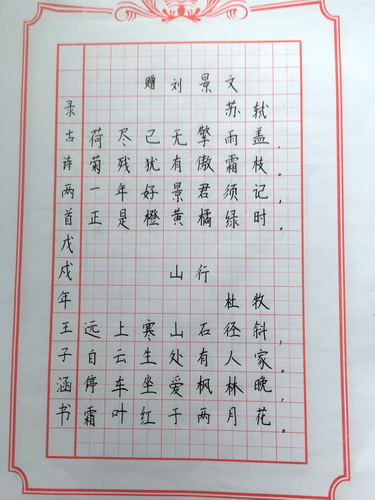 赠刘景文
苏轼
荷尽已无擎雨盖，
菊残犹有傲霜枝。
一年好景君须记，
正是橙黄橘绿时。
山行
杜牧
远上寒山石径斜，
白云生处有人家。
停车坐爱枫林晚，
霜叶红于两月花。
录古诗两首戊戌年王子涵书